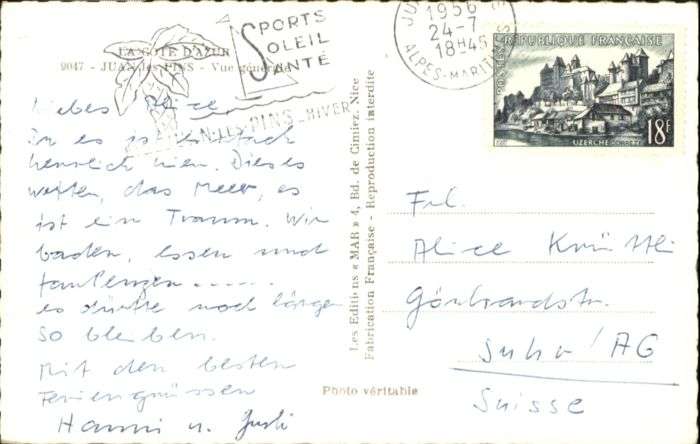 LA COTE D'AZUR
2047 - JUAN-les-PINS - Vue générale
SPORTS
SOLEIL
SANTÉ
JUAN-LES-PINS-HIVER
1956
24-7
18H45
ALPES-MARITIMES
POSTES
REPUBLIQUE FRANÇAISE
18F
UZERCHE
Liebes Alice,
Da es ja einfach
herrlich hier. Dieses
Wetter, das Meer, es
ist ein Traum. Wir
baden, essen und
faulenzen......
es dürfte noch länger
so bleiben.
Mit den besten
Feriengrüssen
Hanni u.
Les Editions « MAR » 4, Bd. de Cimiez, Nice
Fabrication Française - Reproduction interdite
Photo véritable
Frl.
Alice
Suhr / AG
Suisse